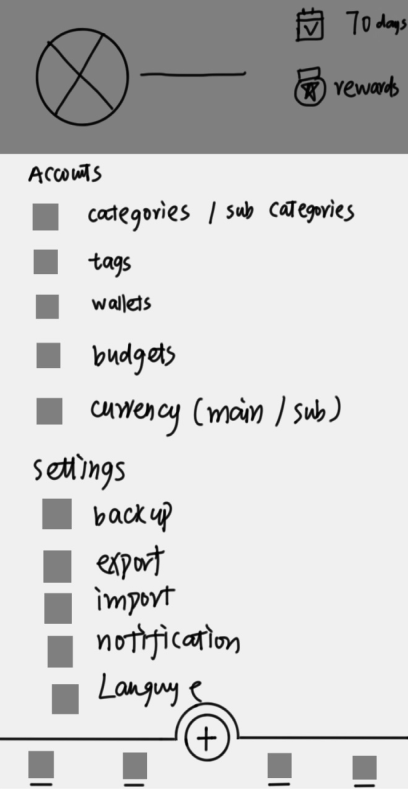 70 days
rewards
Accouts
categories / sub categories
tags
wallets
budgets
currency (main / sub)
settings
backup
export
import
notification
Languye